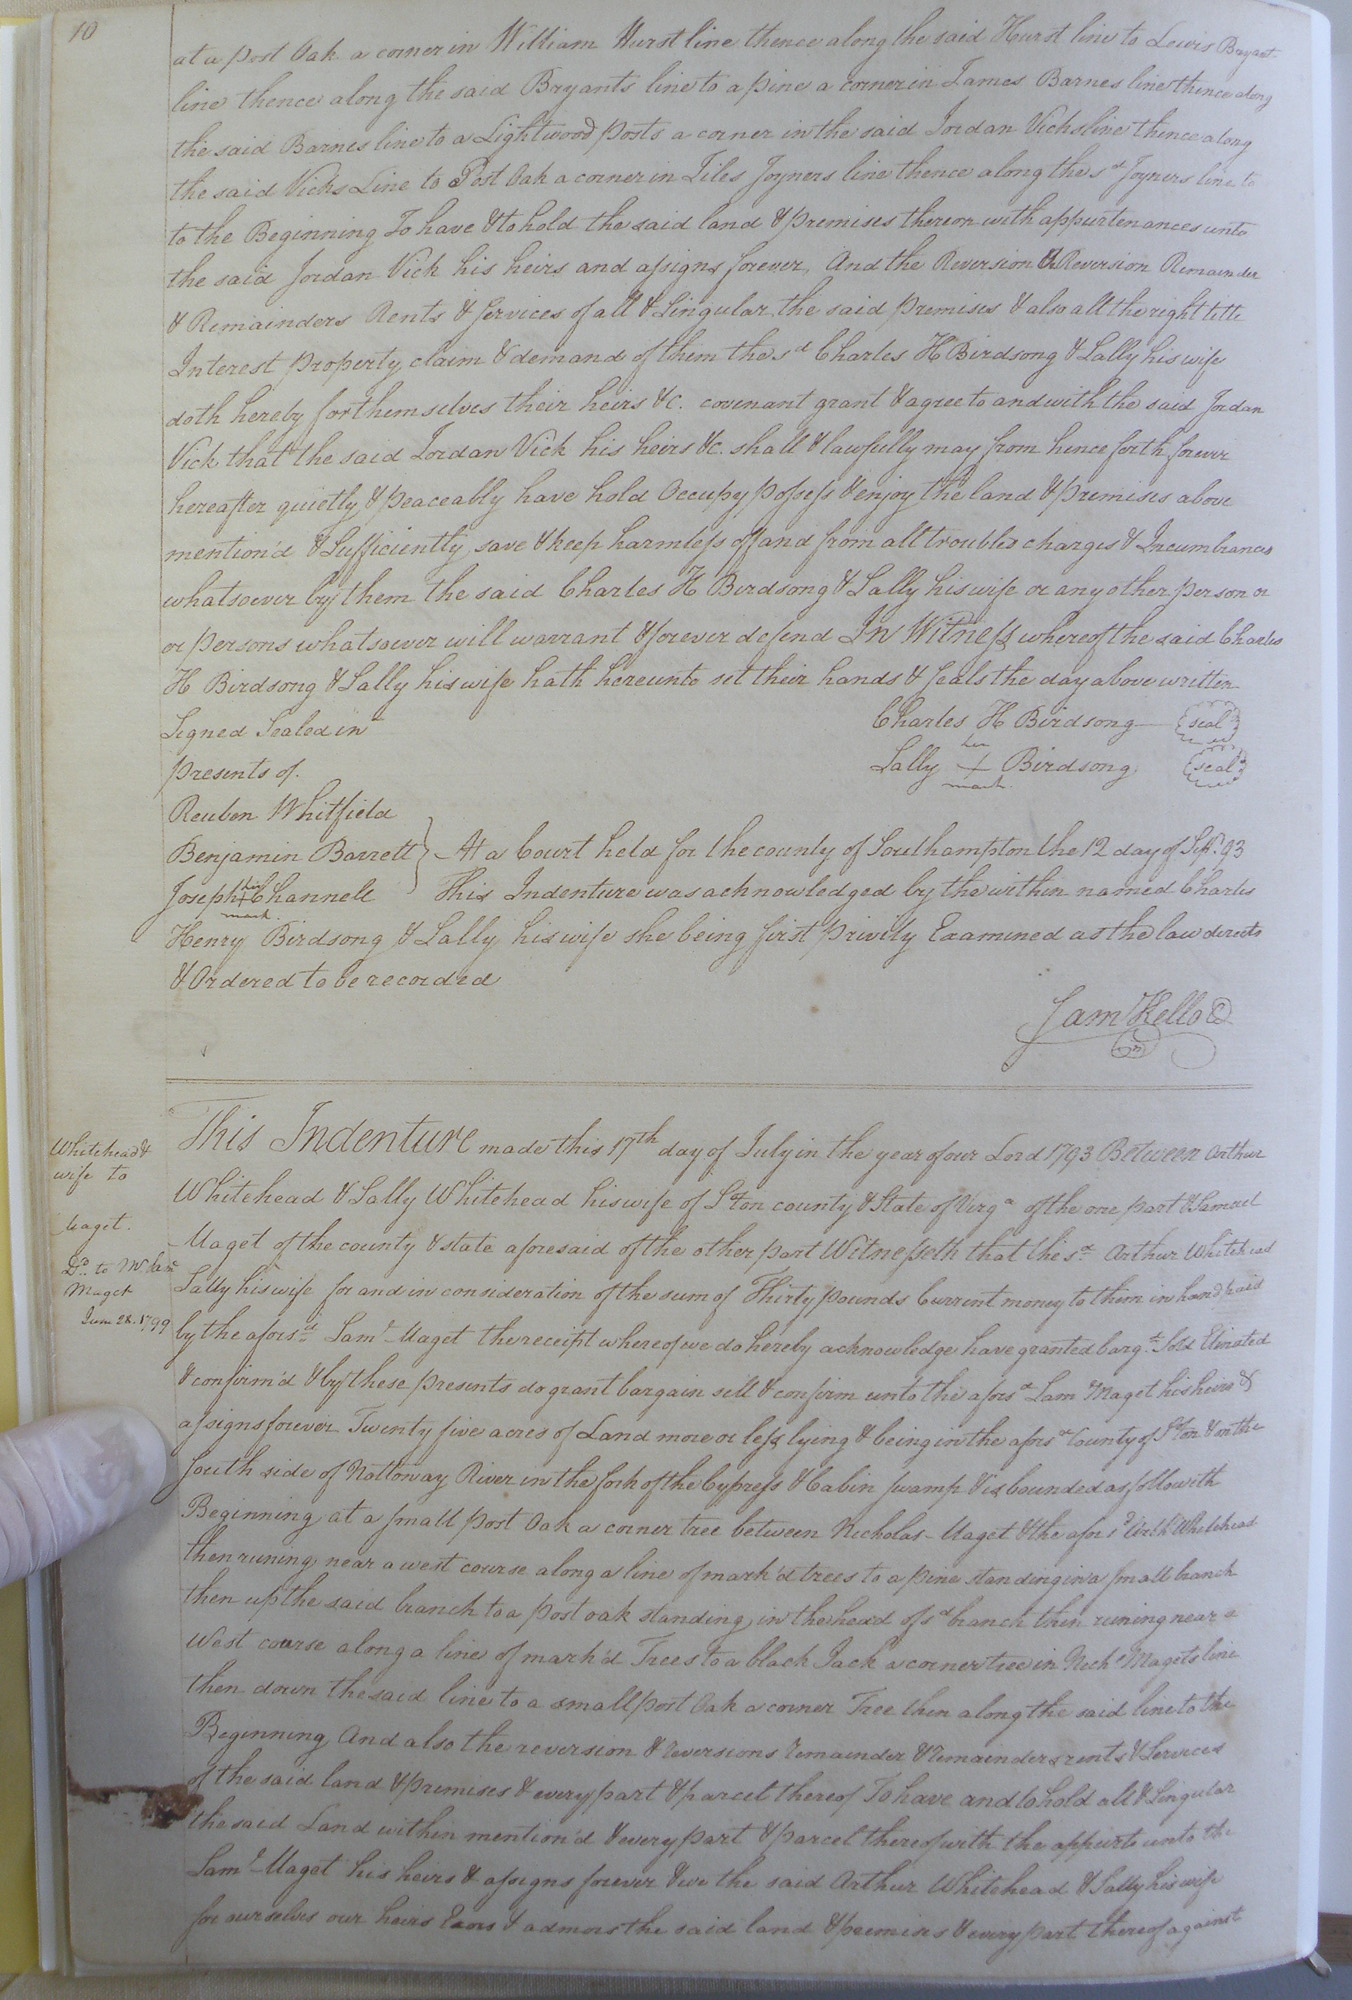 10
at a post Oak a corner in William Hurst line thence along the said Hurst line to Lewis Bryant
line thence along the said Bryants line to a pine a corner in James Barnes line thence along
the said Barnes line to a Lightwood posts a corner in the said Jordan Vicks line thence along
the said Vicks Line to Post Oak a corner in Giles Joyners line thence along the sd Joyners line to
to the Beginning To have & to hold the said land & premises thereon with appurtenances unto
the said Jordan Vick his heirs and assigns forever, And the Reversion & Reversion Remainder
& Remainders Rents & Services of all & Singular the said premises & also all the right title
Interest property claim & demand of them the sd Charles H Birdsong & Sally his wife
doth hereby for themselves their heirs &c. covenant grant & agree to and with the said Jordan
Vick that the said Jordan Vick his heirs &c. shall & lawfully may from hence forth forever
hereafter quietly & peaceably have hold Occupy possess & enjoy the land & premises above
mention'd & Sufficiently save & keep harmless off and from all troubles charges & Incumbrances
whatsoever by them the said Charles H Birdsong & Sally his wife or any other person or
or persons whatsoever will warrant & forever defend In Witness whereof the said Charles
H Birdsong & Sally his wife hath hereunto set their hands & seals the day above written
Signed Sealed in Charles H Birdsong (seal)
presents of. Sally her + mark Birdsong (seal)
Reuben Whitfield
Benjamin Barrett } At a Court held for the county of Southampton the 12 day of Sept. 93
Joseph his + mark Channell This Indenture was acknowledged by the within named Charles
Henry Birdsong & Sally his wife she being first Privily Examined as the law directs
& Ordered to be recorded
Sam Kello C
Whitehead &
wife to
Maget.
Dd. to
Maget
June 28. 1799
This Indenture made this 17th day of July in the year of our Lord 1793 Between Arthur
Whitehead & Sally Whitehead his wife of S'ton county & State of Virga of the one part & Samuel
Maget of the county & state aforesaid of the other part Witnesseth that the sd Arthur Whitehead
Sally his wife for and in consideration of the sum of Thirty pounds Current money to them in hand paid
by the aforsd Saml Maget the receipt whereof we do hereby acknowledge have granted bargd Sold
& confirm'd & by these presents do grant bargain sell & confirm unto the aforsd Sam Maget his heirs &
assigns forever Twenty five acres of Land more or less lying & being in the aforsd County of S'ton & on the
South side of Nottoway River in the fork of the Cypress & Cabin swamp & is bounded as followith
Beginning at a small post Oak a corner tree between Nicholas Maget & the aforsd Arth Whitehead
then runing near a west course along a line of mark'd trees to a pine standing in a small branch
then up the said branch to a post oak standing in the head of sd branch then runing near a
West course along a line of mark'd Trees to a black Jack a corner tree in Nichs Magets line
then down the said line to a small post Oak a corner Tree then along the said line to the
Beginning And also the reversion & reversions remainder & remainders rents & Services
of the said land & premises & every part & parcel thereof To have and to hold all & Singular
the said Land within mention'd & every part & parcel thereof with the appurts unto the
Saml Maget his heirs & assigns forever & we the said Arthur Whitehead & Sally his wife
for ourselves our heirs Exors & admors the said land & premises & every part thereof against